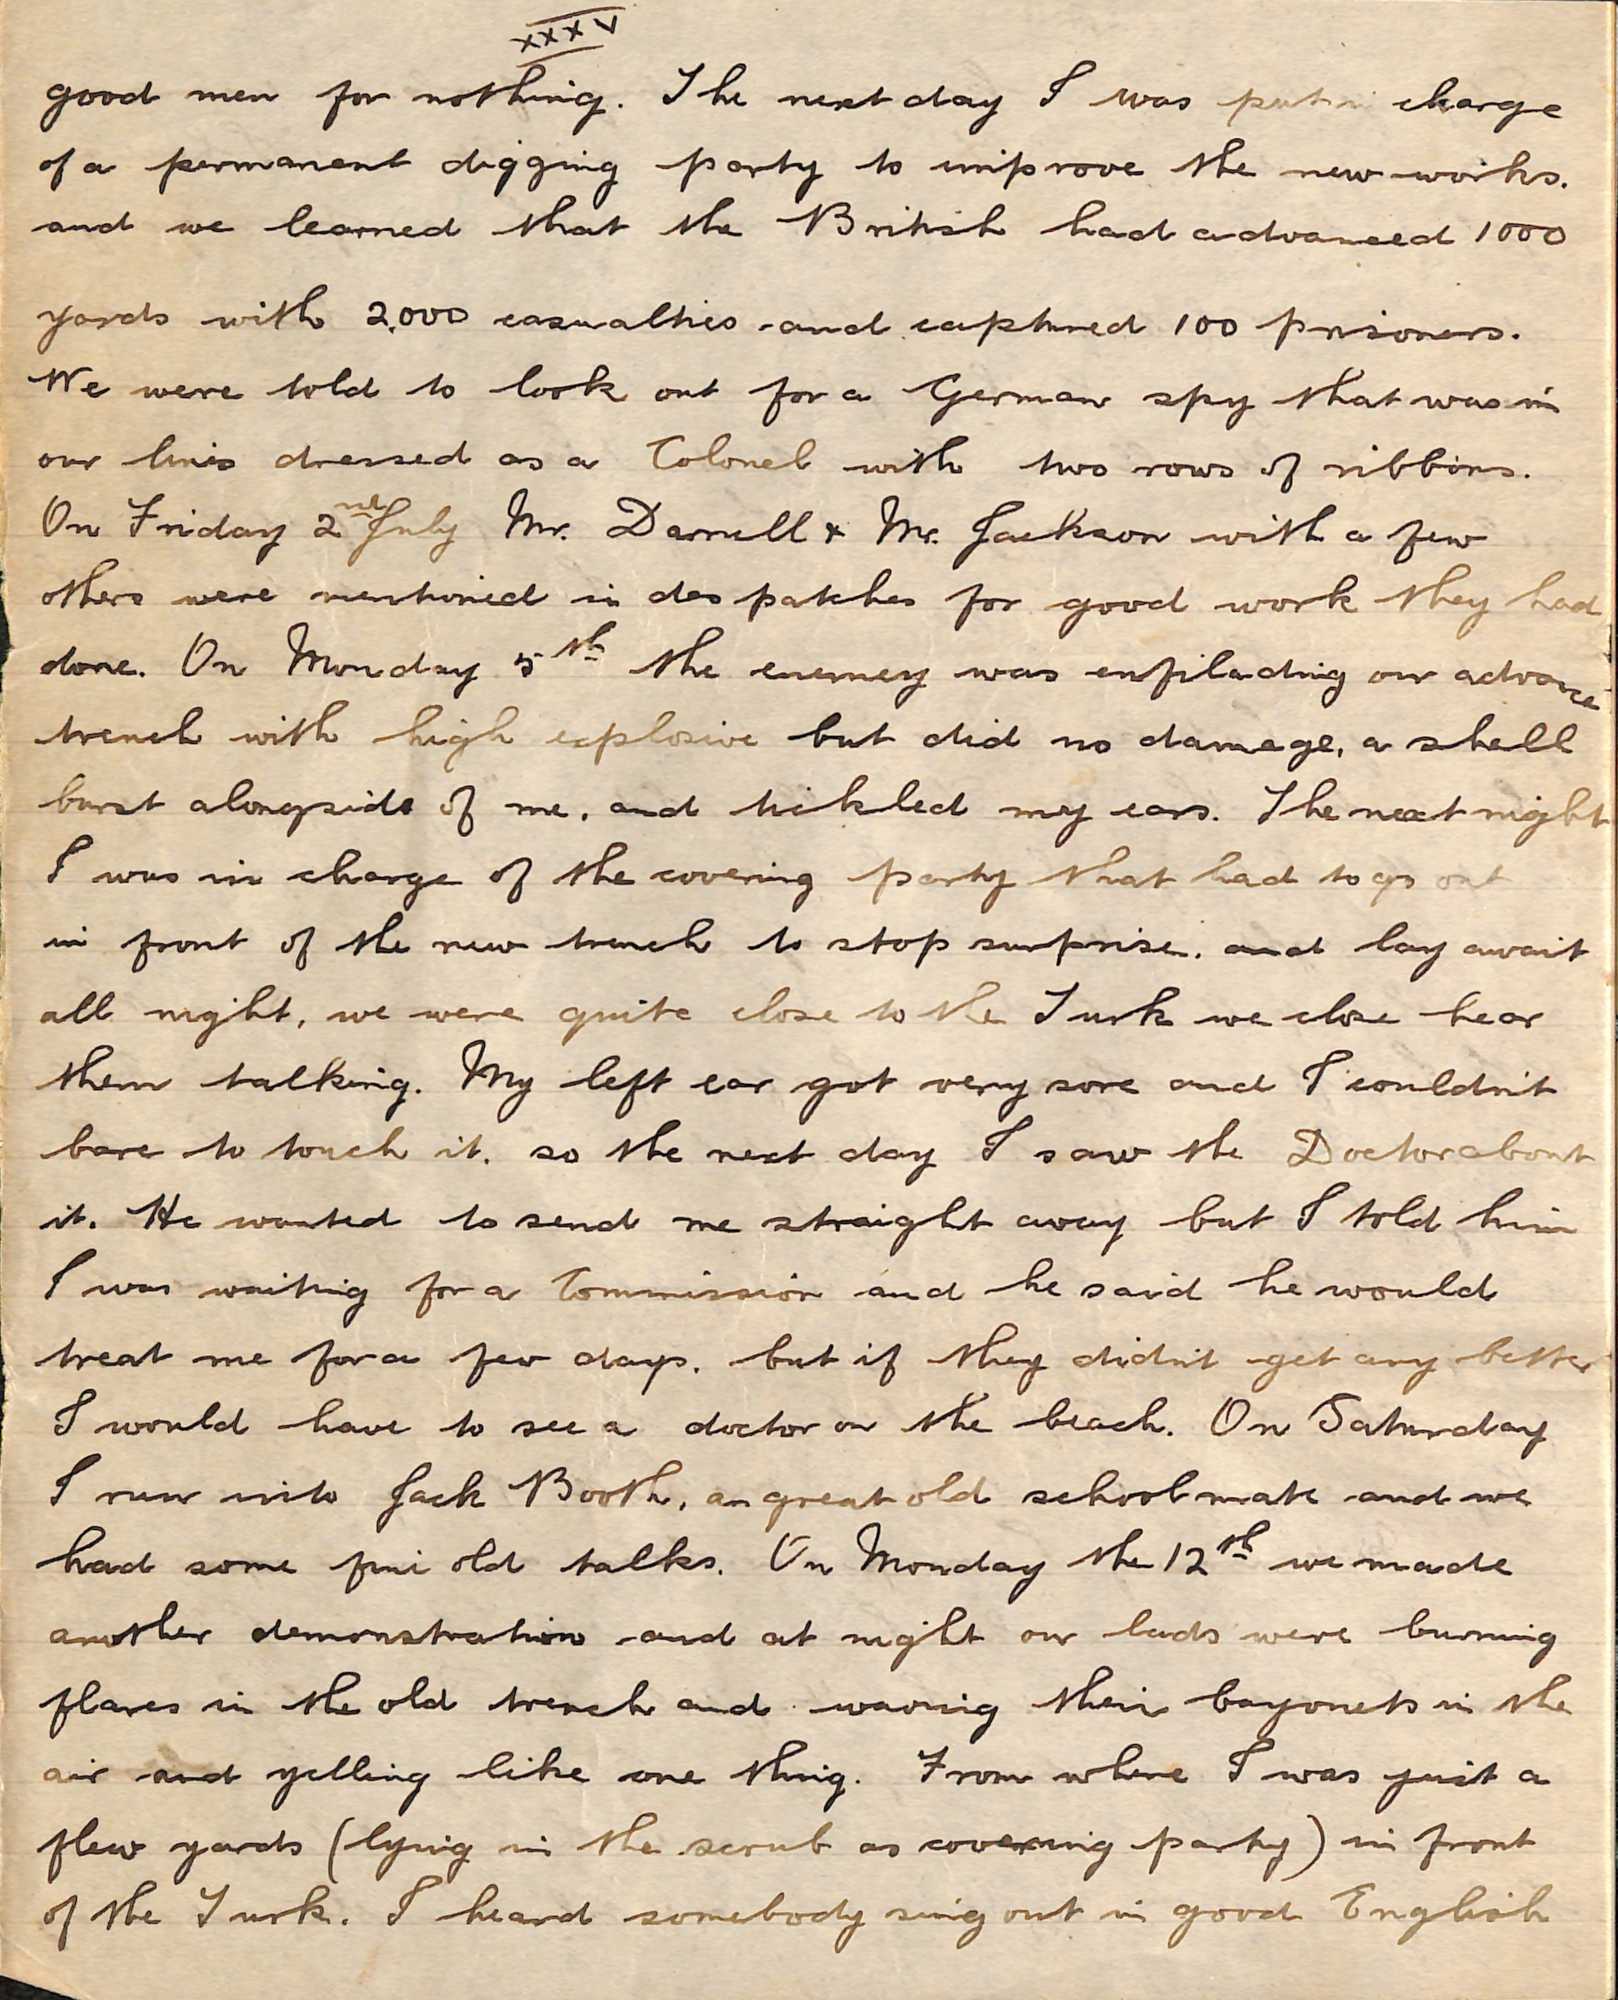 XXXV
good men for nothing. The next day I was put in charge
of a permanent digging party to improve the new works.
and we learned that the British had advanced 1000
yards with 2,000 casualties and captured 100 prisoners.
We were told to look out for a German spy that was in
our lines dressed as a Colonel with two rows of ribbons.
On Friday 2nd July Mr. Darnell & Mr. Jackson with a few
others were mentioned in despatches for good work they had
done. On Monday 5th the enemey was enfilading our advance
trench with high explosive but did no damage, a shell
burst alongside of me, and tickled my ears. The next night
I was in charge of the covering party that had to go out
in front of the new trench to stop surprise. and lay await
all night, we were quite close to the Turk we close hear
them talking. My left ear got very sore and I couldn't
bare to touch it. so the next day I saw the Doctor about
it. He wanted to send me straight away but I told him
I was waiting for a Commission and he said he would
treat me for a few days. but if they didn't get any better
I would have to see a doctor on the beach. On Saturday
I run into Jack Booth, an great old schoolmate and we
had some fine old talks. On Monday the 12th we made
another demonstration and at night our lads were burning
flares in the old trench and waving their bayonets in the
air and yelling like one thing. From where I was just a
flew yards (lying in the scrub as covering party) in front
of the Turk. I heard somebody sing out in good English